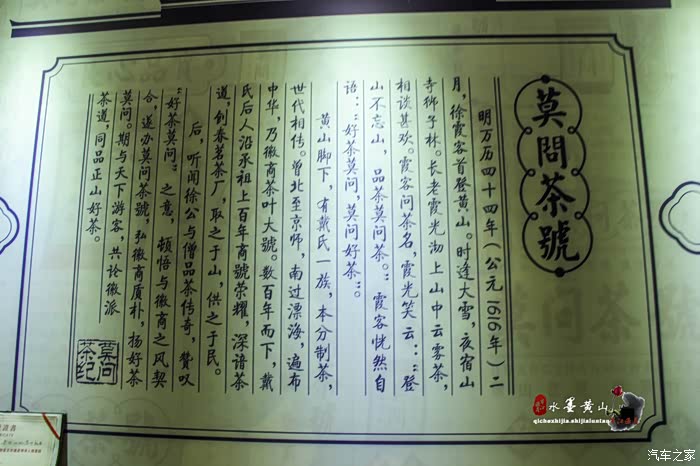 莫問茶號
明万历四十四年（公元1616年）二
月，徐霞客首登黄山。时逢大雪，夜宿山
寺狮子林。长老霞光沏上山中云雾茶，
相谈甚欢。霞客问茶名，霞光笑云：“登
山不忘山，品茶莫问茶。”霞客恍然自
语：“好茶莫问，莫问好茶”。
黄山脚下，有戴氏一族，本分制茶，
世代相传。曾北至京师，南过漂海，遍布
中华，乃徽商茶叶大號。数百年而下，戴
氏后人沿承祖上百年商號荣耀，深谙茶
道，创春茗茶厂，取之于山，供之于民。
后，听闻徐公与僧品茶传奇，赞叹
“好茶莫问”之意，顿悟与徽商之风契
合，遂办莫问茶號，弘徽商质朴，扬好茶
莫问。期与天下游客，共论徽派
茶道，同品正山好茶。
莫问
茶纪
水墨黄山
qichezhijia.shijialuntan
汽车之家